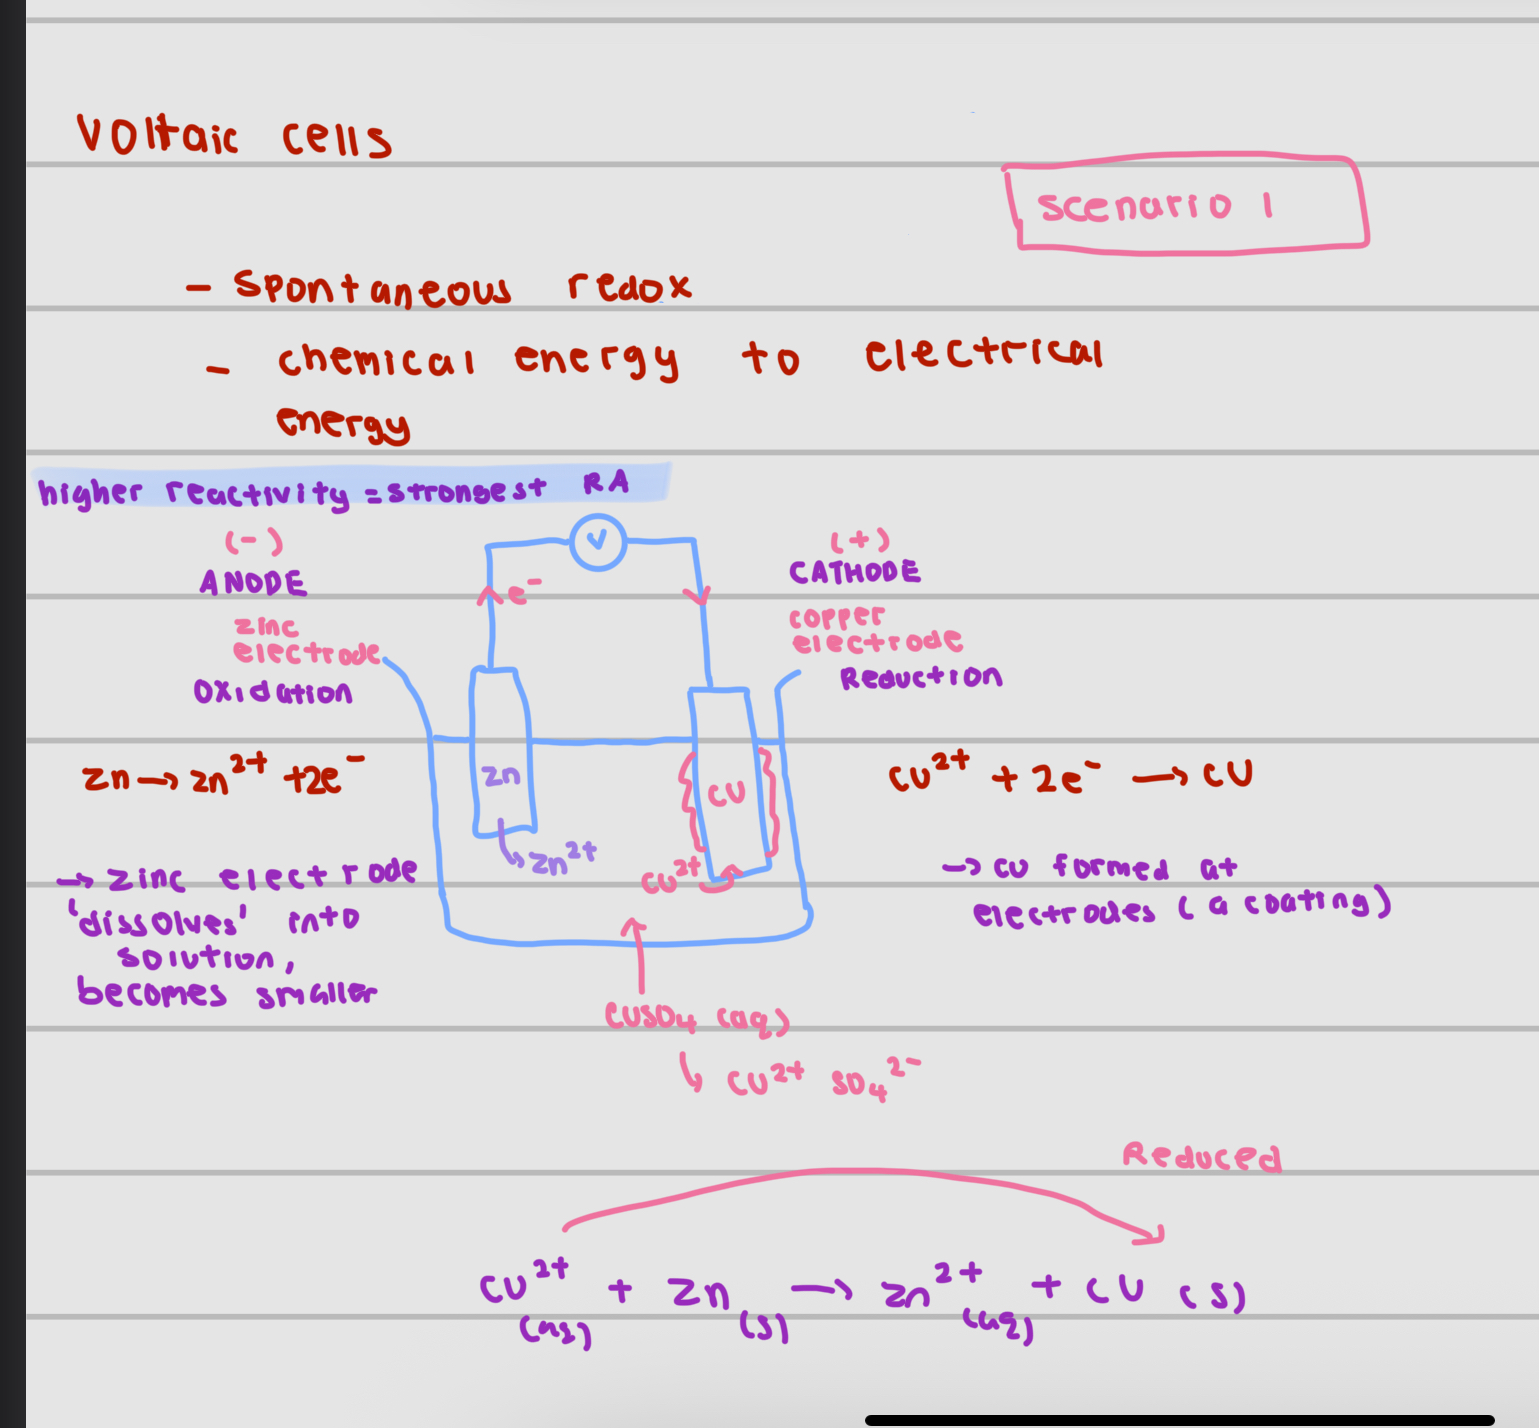 Voltaic cells
scenario 1
- spontaneous redox
- chemical energy to electrical
energy
higher reactivity = strongest RA
(-)
ANODE
zinc
electrode
oxidation
V
e⁻
(+)
CATHODE
copper
electrode
Reduction
Zn → Zn²⁺ + 2e⁻
Zn
Zn²⁺
Cu
Cu²⁺
Cu²⁺ + 2e⁻ → Cu
→ zinc electrode
'dissolves' into
solution,
becomes smaller
→ Cu formed at
electrodes (a coating)
CuSO₄ (aq)
↳ Cu²⁺ SO₄²⁻
Reduced
Cu²⁺ (aq) + Zn (s) → Zn²⁺ (aq) + Cu (s)